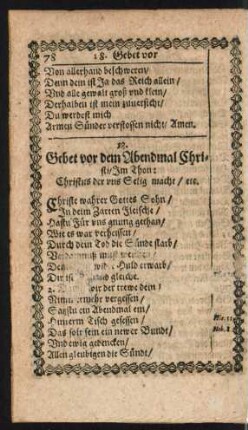 78 18. Gebet vor
Von allerhand beschweren/
Denn dein ist Ja das Reich allein/
Vnd alle gewalt groß vnd klein/
Derhalben ist mein zuuersicht/
Du werdest mich
Armen Sünder verstossen nicht/ Amen.
Gebet vor dem Abendmal Chri-
sti/ Im Thon:
Christus der vns Selig macht/ etc.
Christe wahrer Gottes Sohn/
In dem Zarten Fleische/
Hastu Für vns gnung gethan/
Wie es war verheissen/
Durch dein Tod die Sünde starb/
Huld erwarb/
Dir ist
wir der trewe dein
Nimmermehr vergessen/
Satzstu ein Abendmal ein/
Hinterm Tisch gesessen/
Das solt sein ein newer Bundt/
Vnd ewig gedencken/
Allen gleubigen die Sünde/